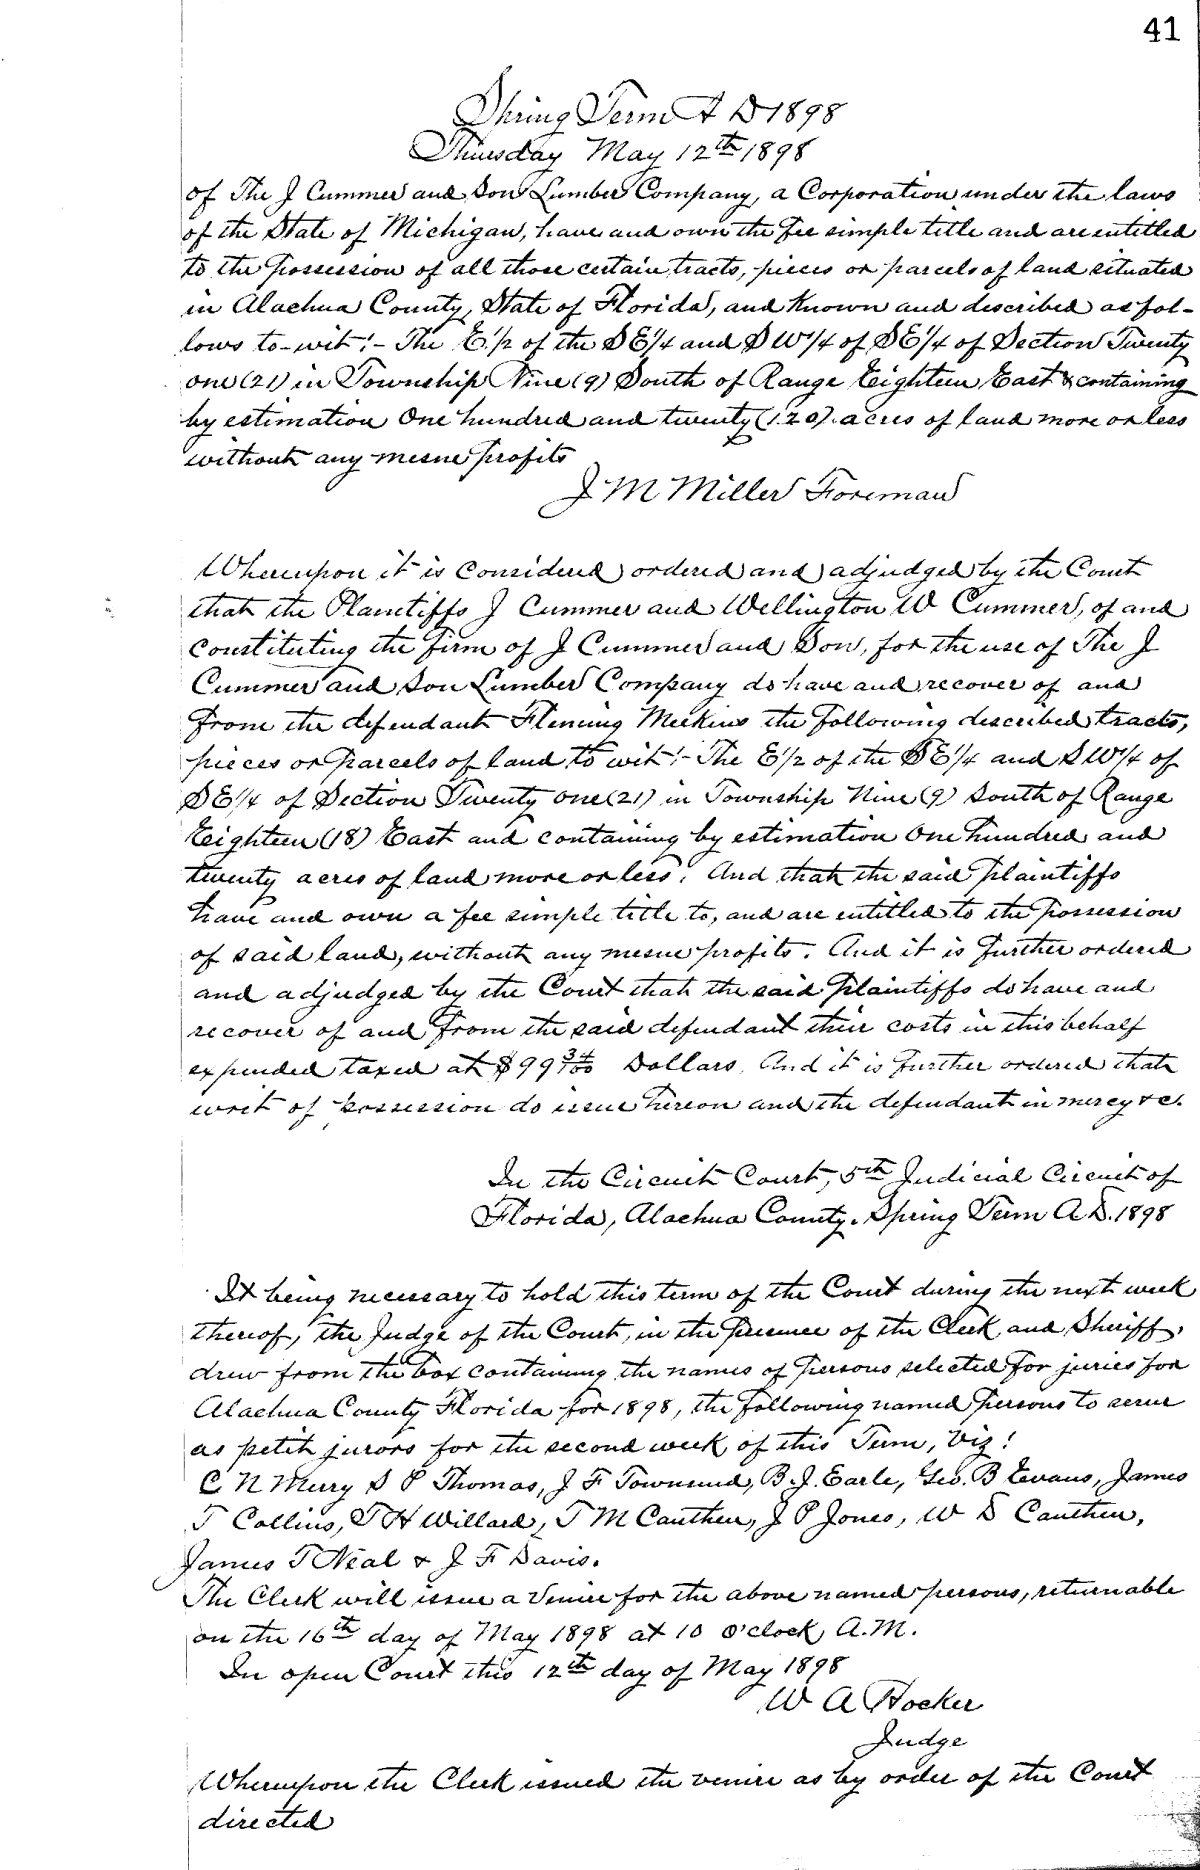 41
Spring Term A D 1898
Thursday May 12th 1898
of The J Cummer and Son Lumber Company, a Corporation under the laws
of the State of Michigan, have and own the fee simple title and are entitled
to the possession of all those certain tracts, pieces or parcels of land situated
in Alachua County, State of Florida, and Known and described as fol-
lows to-wit:- The E.1/2 of the SE1/4 and SW1/4 of SE1/4 of Section Twenty
one (21) in Township Nine (9) South of Range Eighteen East & containing
by estimation One hundred and twenty (120) acres of land more or less
without any mesne profits
J M Miller Foreman
Whereupon it is considered ordered and adjudged by the Court
that the Plaintiffs J Cummer and Wellington W Cummer, of and
constituting the firm of J Cummer and Son, for the use of The J
Cummer and Son Lumber Company do have and recover of and
from the defendant Fleming Meekins the following described tracts,
pieces or parcels of land to wit:- The E1/2 of the SE1/4 and SW1/4 of
SE1/4 of Section Twenty one (21) in Township Nine (9) South of Range
Eighteen (18) East and containing by estimation One hundred and
twenty acres of land more or less. And that the said plaintiffs
have and own a fee simple title to, and are entitled to the possession
of said land, without any mesne profits. And it is further ordered
and adjudged by the Court that the said Plaintiffs do have and
recover of and from the said defendant their costs in this behalf
expended taxed at $99 34/100 Dollars. And it is further ordered that
writ of possession do issue hereon and the defendant in mercy &c.
In the Circuit Court, 5th Judicial Circuit of
Florida, Alachua County. Spring Term A.D. 1898
It being necessary to hold this term of the Court during the next week
thereof, the Judge of the Court, in the presence of the Clerk and Sheriff,
drew from the box containing the names of persons selected for juries for
Alachua County Florida for 1898, the following named persons to serve
as petit jurors for the second week of this Term, Viz:
C N Mury S P Thomas, J F Townsend, B. J. Earle, Geo. B Evans, James
T Collins, T H Willard, T M Cauthen, J P Jones, W D Cauthen,
James T Neal & J F Davis.
The Clerk will issue a venire for the above named persons, returnable
on the 16th day of May 1898 at 10 o'clock A.M.
In open Court this 12th day of May 1898
W A Hocker
Judge
Whereupon the Clerk issued the venire as by order of the Court
directed